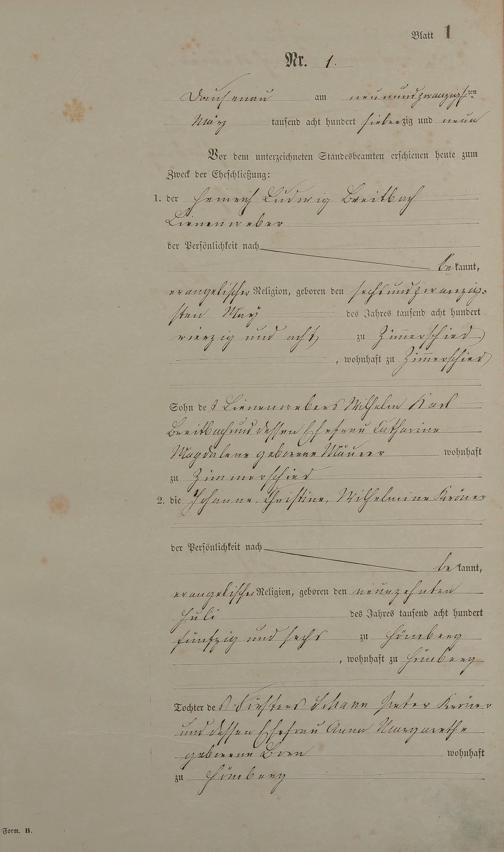 Blatt 1
Nr. 1.
Dausenau am neunundzwanzigsten
März tausend acht hundert siebenzig und neun
Vor dem unterzeichneten Standesbeamten erschienen heute zum
Zweck der Eheschließung:
1. der Heinrich Ludwig Breitbach
Leinenweber
der Persönlichkeit nach
bekannt,
evangelischer Religion, geboren den sechsundzwanzig-
sten May des Jahres tausend acht hundert
vierzig und acht, zu Zimmerschied
, wohnhaft zu Zimmerschied
Sohn des Leinenwebers Wilhelm Karl
Breitbach und dessen Ehefrau Katharine
Magdalene geborene wohnhaft
zu Zimmerschied
2. die Johanne Christine, Wilhelmine
der Persönlichkeit nach
bekannt,
evangelischer Religion, geboren den neunzehnten
Juli des Jahres tausend acht hundert
fünfzig und sechs zu Hömberg
, wohnhaft zu Hömberg
Tochter des Johann Peter
und dessen Ehefrau Anna Margarethe
geborene Born wohnhaft
zu Hömberg
Form. B.